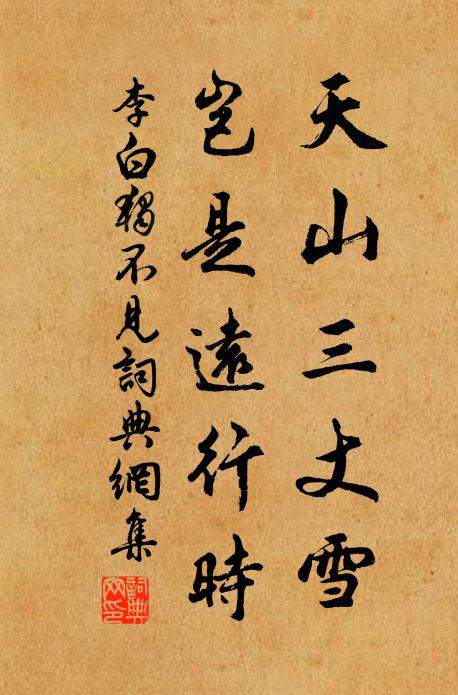 天山三丈雪
豈是遠行時
李白獨不見詞典網集
詞典網印